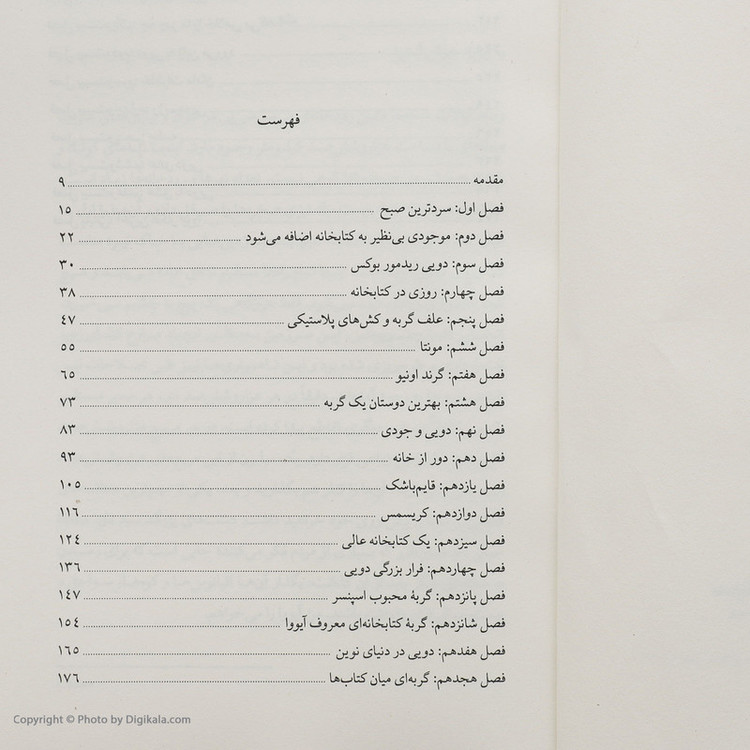 فهرست
مقدمه ........ ۹
فصل اول: سردترین صبح ........ ۱۵
فصل دوم: موجودی بی‌نظیر به کتابخانه اضافه می‌شود ........ ۲۲
فصل سوم: دویی ریدمور بوکس ........ ۳۰
فصل چهارم: روزی در کتابخانه ........ ۳۸
فصل پنجم: علف گربه و کش‌های پلاستیکی ........ ٤۷
فصل ششم: مونتا ........ ۵۵
فصل هفتم: گرند اونیو ........ ٦۵
فصل هشتم: بهترین دوستان یک گربه ........ ۷۳
فصل نهم: دویی و جودی ........ ۸۳
فصل دهم: دور از خانه ........ ۹۳
فصل یازدهم: قایم‌باشک ........ ۱۰۵
فصل دوازدهم: کریسمس ........ ۱۱٦
فصل سیزدهم: یک کتابخانه عالی ........ ۱۲٤
فصل چهاردهم: فرار بزرگی دویی ........ ۱۳٦
فصل پانزدهم: گربۀ محبوب اسپنسر ........ ۱٤۷
فصل شانزدهم: گربۀ کتابخانه‌ای معروف آیووا ........ ۱۵٤
فصل هفدهم: دویی در دنیای نوین ........ ۱٦۵
فصل هجدهم: گربه‌ای میان کتاب‌ها ........ ۱۷٦
Copyright © Photo by Digikala.com